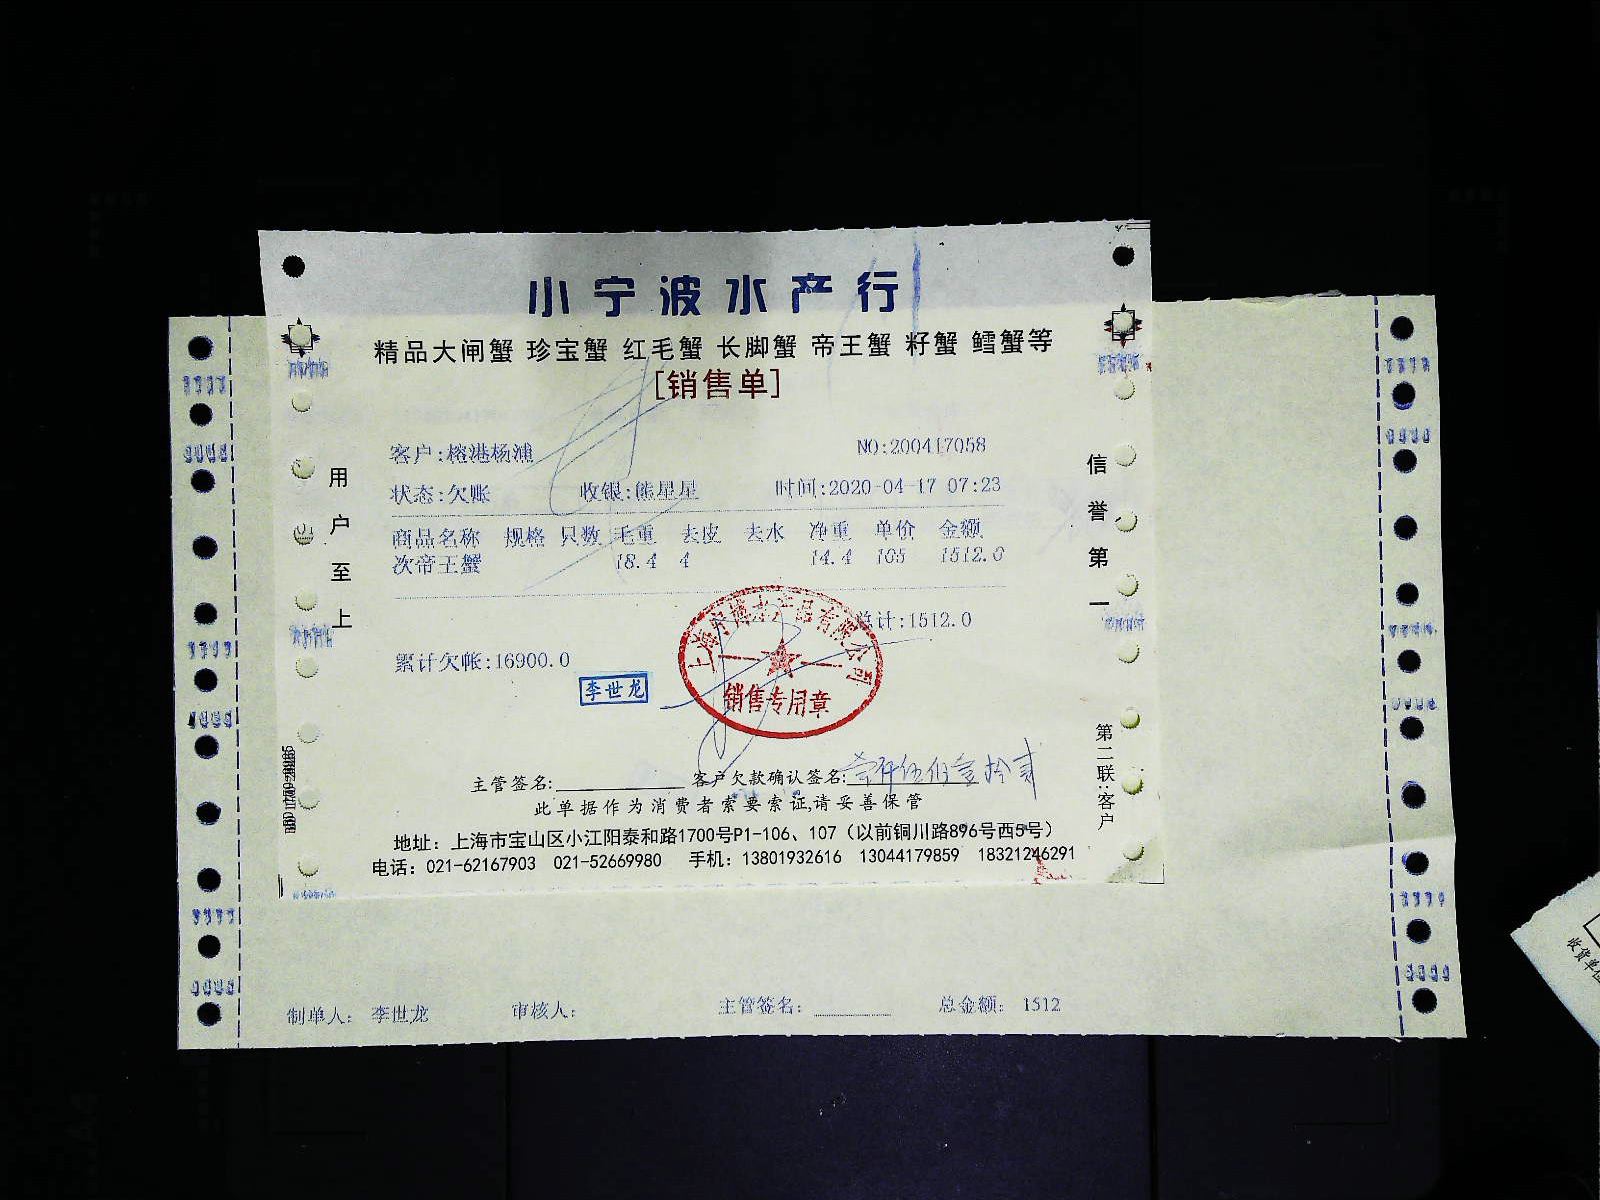 小宁波水产行
精品大闸蟹 珍宝蟹 红毛蟹 长脚蟹 帝王蟹 籽蟹 鳕蟹等
[销售单]
客户:榕港杨浦 NO:200417058
状态:欠账 收银:熊星星 时间:2020-04-17 07:23
商品名称 规格 只数 毛重 去皮 去水 净重 单价 金额
次帝王蟹 18.4 4 14.4 105 1512.0
总计:1512.0
累计欠帐:16900.0
李世龙
销售专用章
主管签名: 客户欠款确认签名: 壹仟伍佰壹拾贰
此单据作为消费者索要索证,请妥善保管
地址：上海市宝山区小江阳泰和路1700号P1-106、107（以前铜川路896号西5号）
电话：021-62167903 021-52669980 手机：13801932616 13044179859 18321246291
用户至上
信誉第一
第二联:客户
制单人: 李世龙 审核人: 主管签名: 总金额: 1512
收货单位